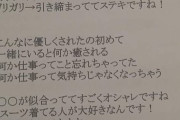 ガリガリ→引き締まっててステキですね!
こんなに優しくされたの初めて
一緒にいると何か癒される
何か仕事ってこと忘れちゃってた
何か仕事って気持ちじゃなくなっちゃう
○○が似合っててすごくオシャレですね
スーツ着てる人が大好きなんです!